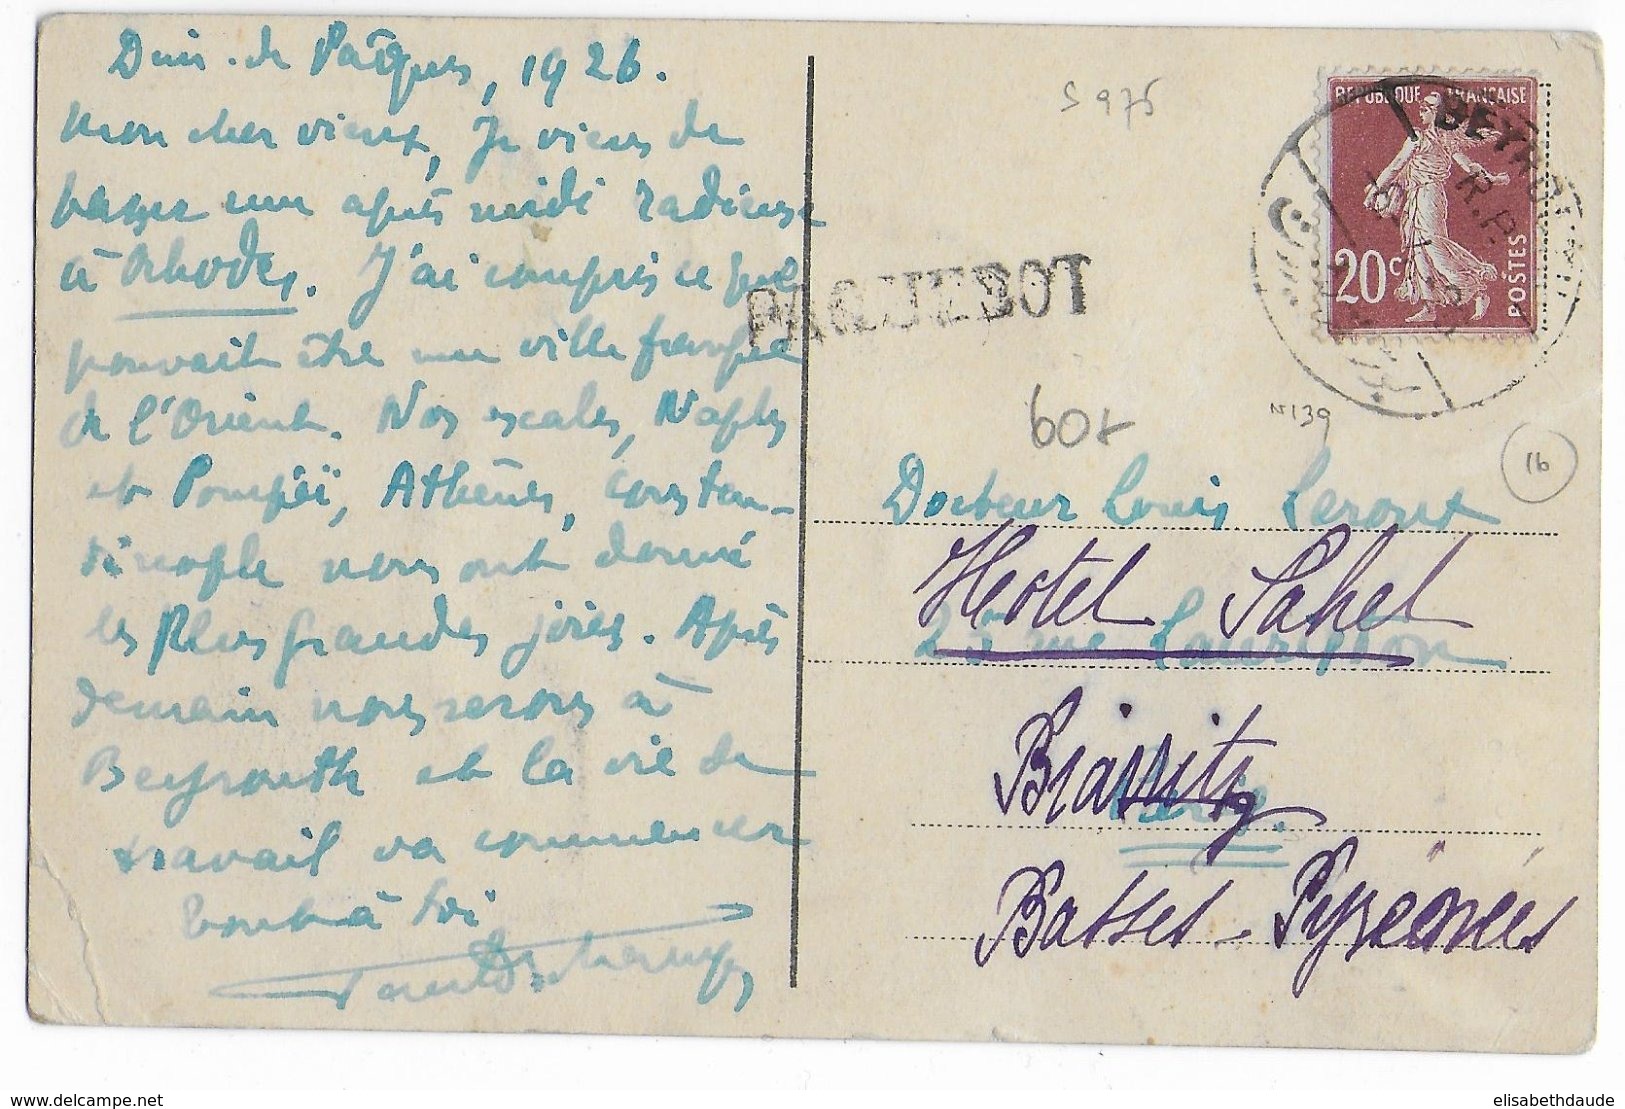 Dim. de Pâques, 1926.
Mon cher vieux, Je viens de
passer une après midi radieuse
à Rhodes. J'ai compris ce que
pouvait être une ville franque
de l'Orient. Nos escales, Naples
et Pompéï, Athènes, Constan-
tinople nous ont donné
les plus grandes joies. Après
demain nous serons à
Beyrouth et la vie de
travail va commencer
Tout à toi
S 975
REPUBLIQUE FRANÇAISE
20c
POSTES
BEYROUTH
R.P.
PAQUEBOT
60+
N139
16
Docteur Louis Leroux
Hotel Sahel
25 rue Lauriston
Biarritz
Paris.
Basses-Pyrénées
delcampe.net
elisabethdaude